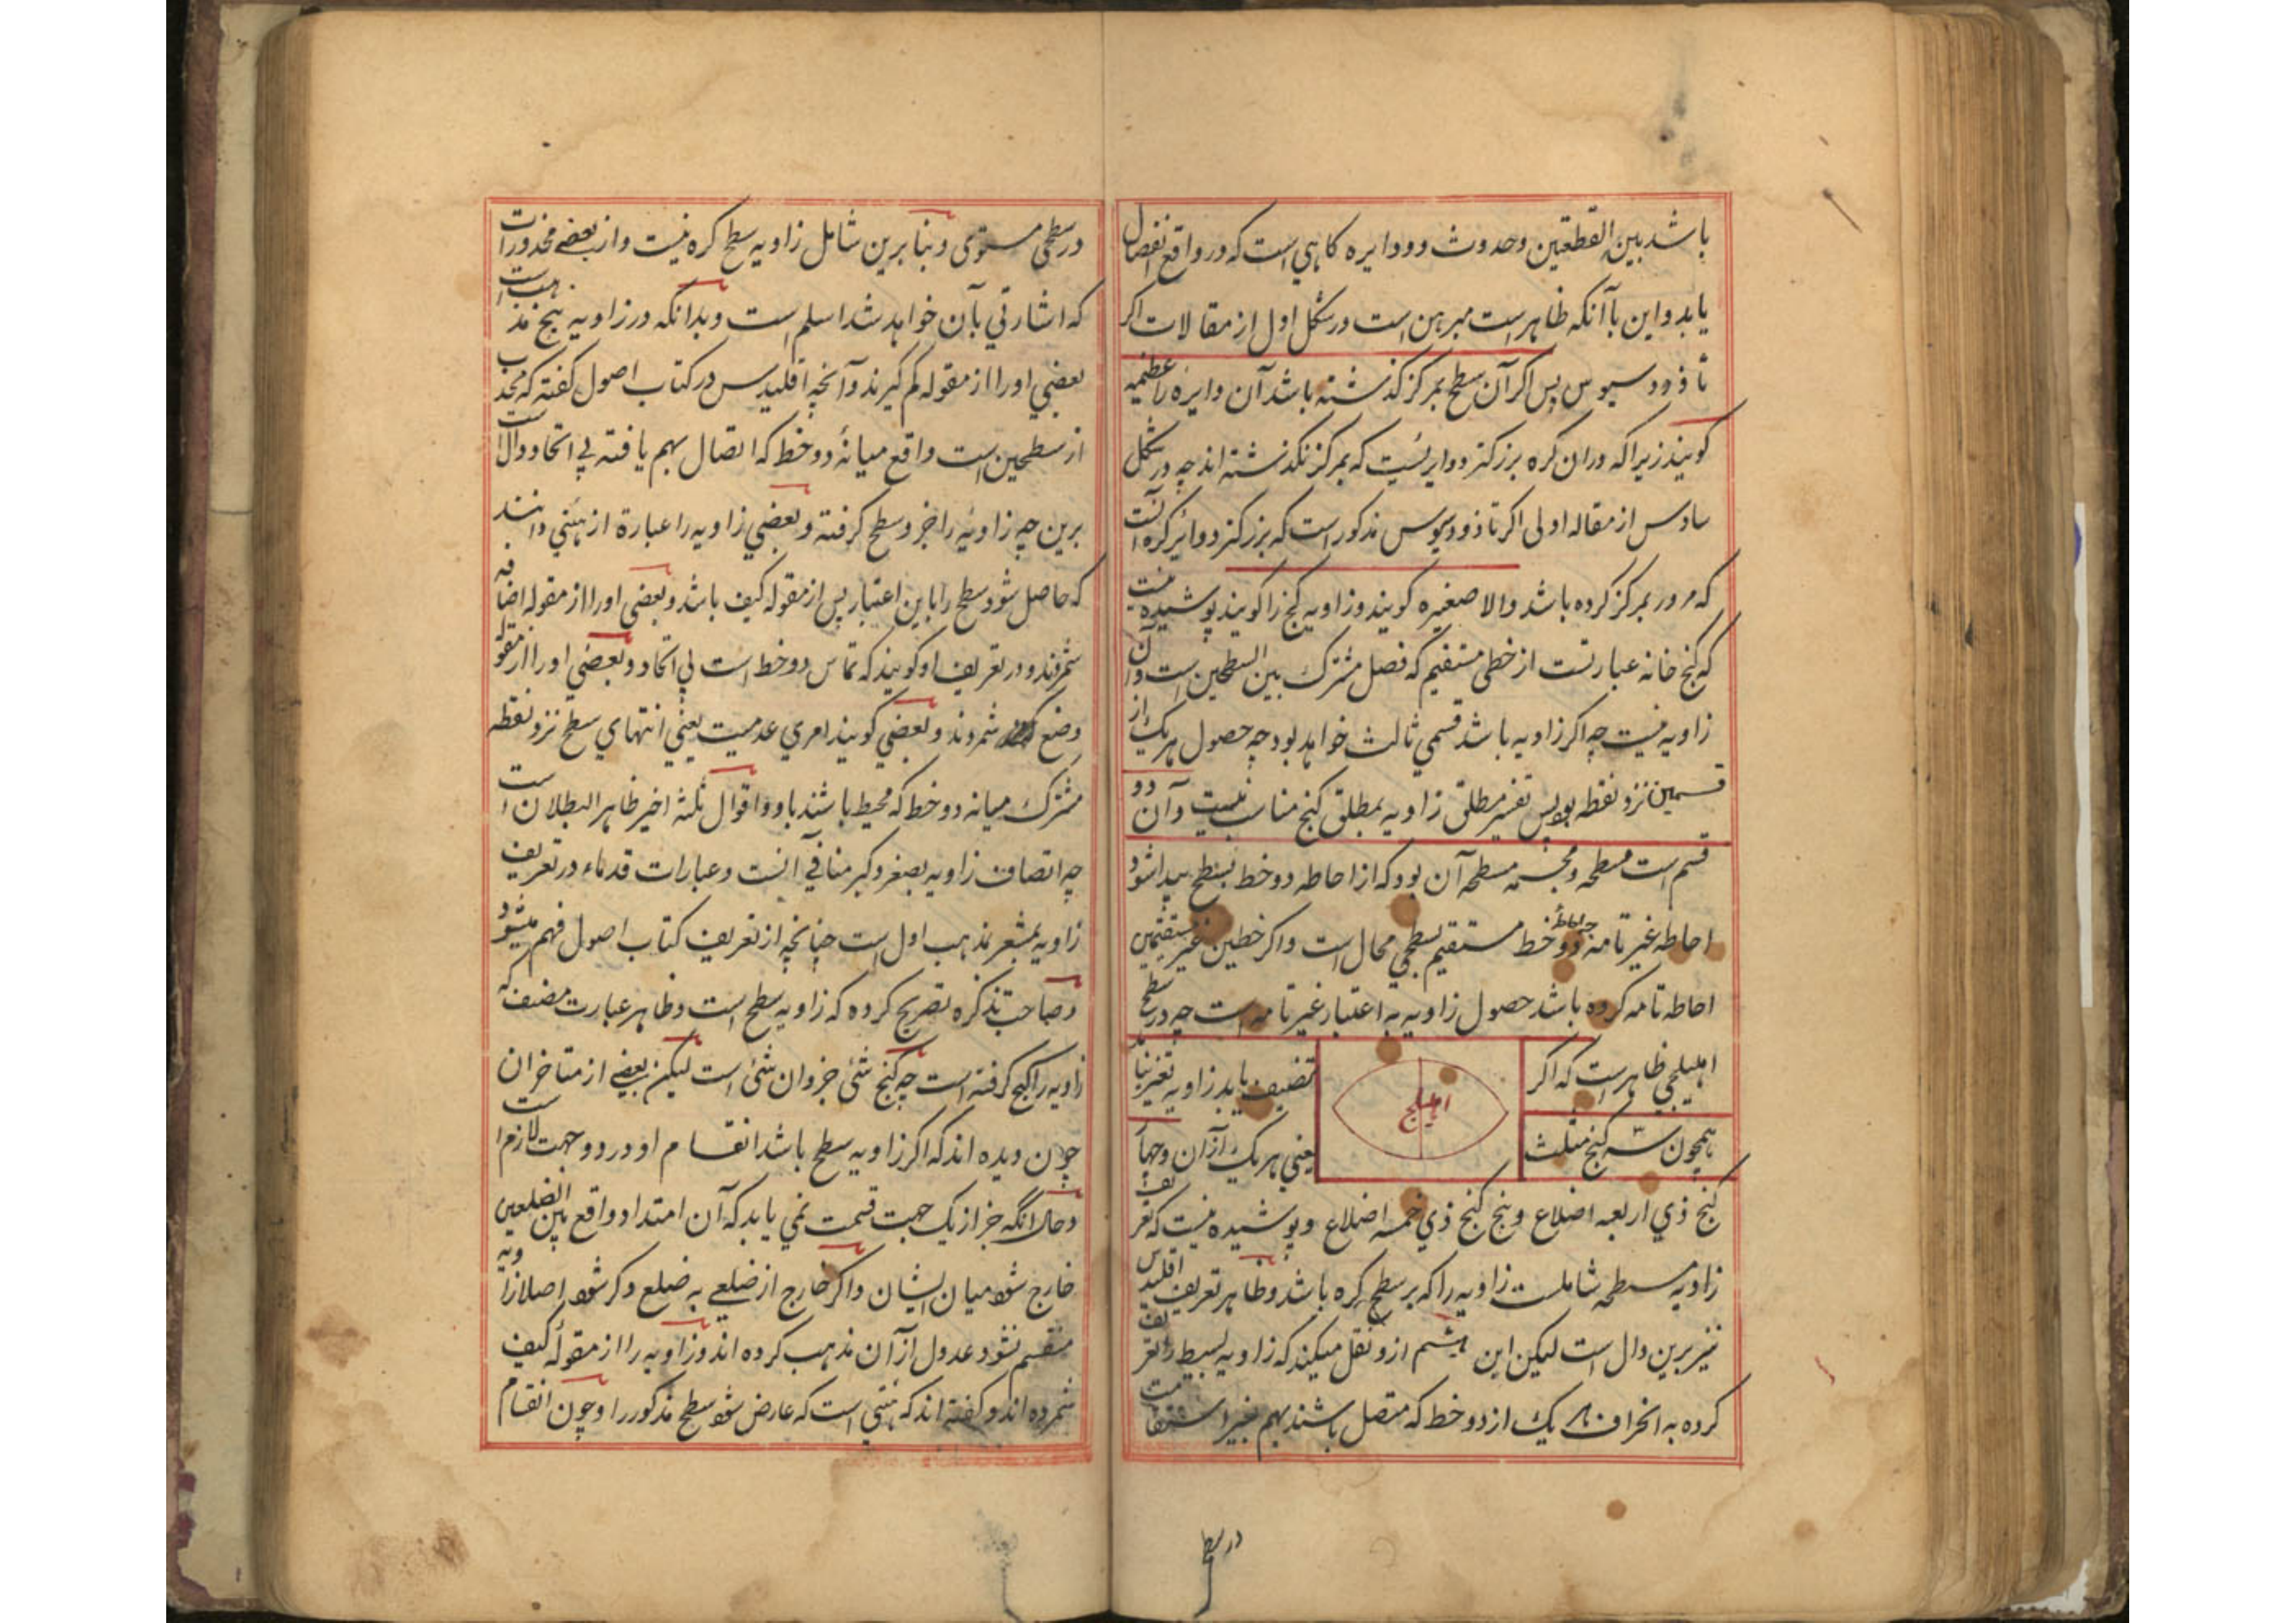 باشد بین القطعتین وحدوث دو دایره گاهی است که در واقع انفصال
یابد و این با آنکه ظاهر است مبرهن است در شکل اول از مقالات اکر
ثاوذوسیوس پس اکر آن سطح بمرکز کذشته باشد آن دایره را عظیمه
کویند زیرا که در ان کره بزرکتر دوایریست که بمرکز نکذشته اند چه در شکل
سادس از مقاله اولی اکر ثاوذوسیوس مذکور است که بزرکتر دوایر کره آنست
که مرور بمرکز کرده باشد والا صغیره کویند و زاویه کنج را کویند پوشیده نیست
که کنج خانه عبارتست از خطی مستقیم که فصل مشترک بین السطحین است و آن
زاویه نیست چه اکر زاویه باشد قسمی ثالث خواهد بود چه حصول هریک از
قسمین نزد نقطه بود پس تفسیر مطلق زاویه بمطلق کنج مناسب نیست و آن دو
قسم است مسطحه و مجسمه مسطحه آن بود که از احاطه دو خط بسطح پیدا شود
احاطه غیر تامه چه احاطهٔ دو خط مستقیم بسطحی محال است و اکر خطین غیر مستقیمین
احاطه تامه کرده باشد حصول زاویه به اعتبار غیر تامه است چه در سطح
اهلیلجی ظاهر است که اکر
تنصیف یابد زاویه تغیر نیابد
اهلیلج
همچون سه کنج مثلث
یعنی هریک از آن و چهار
کنج ذی اربعه اضلاع و پنج کنج ذی خمسه اضلاع و پوشیده نیست که تعریف
زاویه مسطحه شاملست زاویه را که بر سطح کره باشد و ظاهر تعریف اقلیدس
نیز برین دال است لیکن ابن هیثم ازو نقل میکند که زاویه بسیط را تعریف
کرده به انحراف هر یک از دو خط که متصل باشند بهم بغیر استقامت
در سطح
در سطحی مستوی و بنا برین شامل زاویه سطح کره نیست و از بعضی محذورات
که اشارتی بآن خواهد شد اسلم است و بدانکه در زاویه پنج مذهب است
بعضی او را از مقوله کم کیرند و آنچه اقلیدس در کتاب اصول کفته که محدب
از سطحین است واقع میانهٔ دو خط که اتصال بهم یافته بی اتحاد دال است
برین چه زاویه را جزو سطح کرفته و بعضی زاویه را عبارة از هیئتی دانند
که حاصل شود سطح را باین اعتبار پس از مقوله کیف باشد و بعضی او را از مقوله اضافه
شمرند و در تعریف او کویند که تماس دو خط است بی اتحاد و بعضی او را از مقوله
وضع شمرند و بعضی کویند امری عدمیست یعنی انتهای سطح نزد نقطه
مشترک میانه دو خط که محیط باشند باو و اقوال ثلثه اخیر ظاهر البطلان است
چه اتصاف زاویه بصغر و کبر منافی آنست و عبارات قدماء در تعریف
زاویه مشعر بمذهب اول است چنانچه از تعریف کتاب اصول فهم میشود
و صاحب تذکره تصریح کرده که زاویه سطح است و ظاهر عبارت مصنف که
زاویه را کنج کرفته است چه کنج شئ جزو ان شئ است لیکن بعضی از متاخران
چون دیده اند که اکر زاویه سطح باشد انقسام او در دو جهت لازم است
و حال انکه جز از یک جهت قسمت نمی یابد که آن امتداد واقع بین الضلعین
خارج شود میان ایشان و اکر خارج از ضلعی به ضلع دکر شود اصلا زاویه
منقسم نشود عدول از آن مذهب کرده اند و زاویه را از مقولهٔ کیف
شمرده اند و کفته اند که هیئتی است که عارض شود سطح مذکور را و چون انقسام